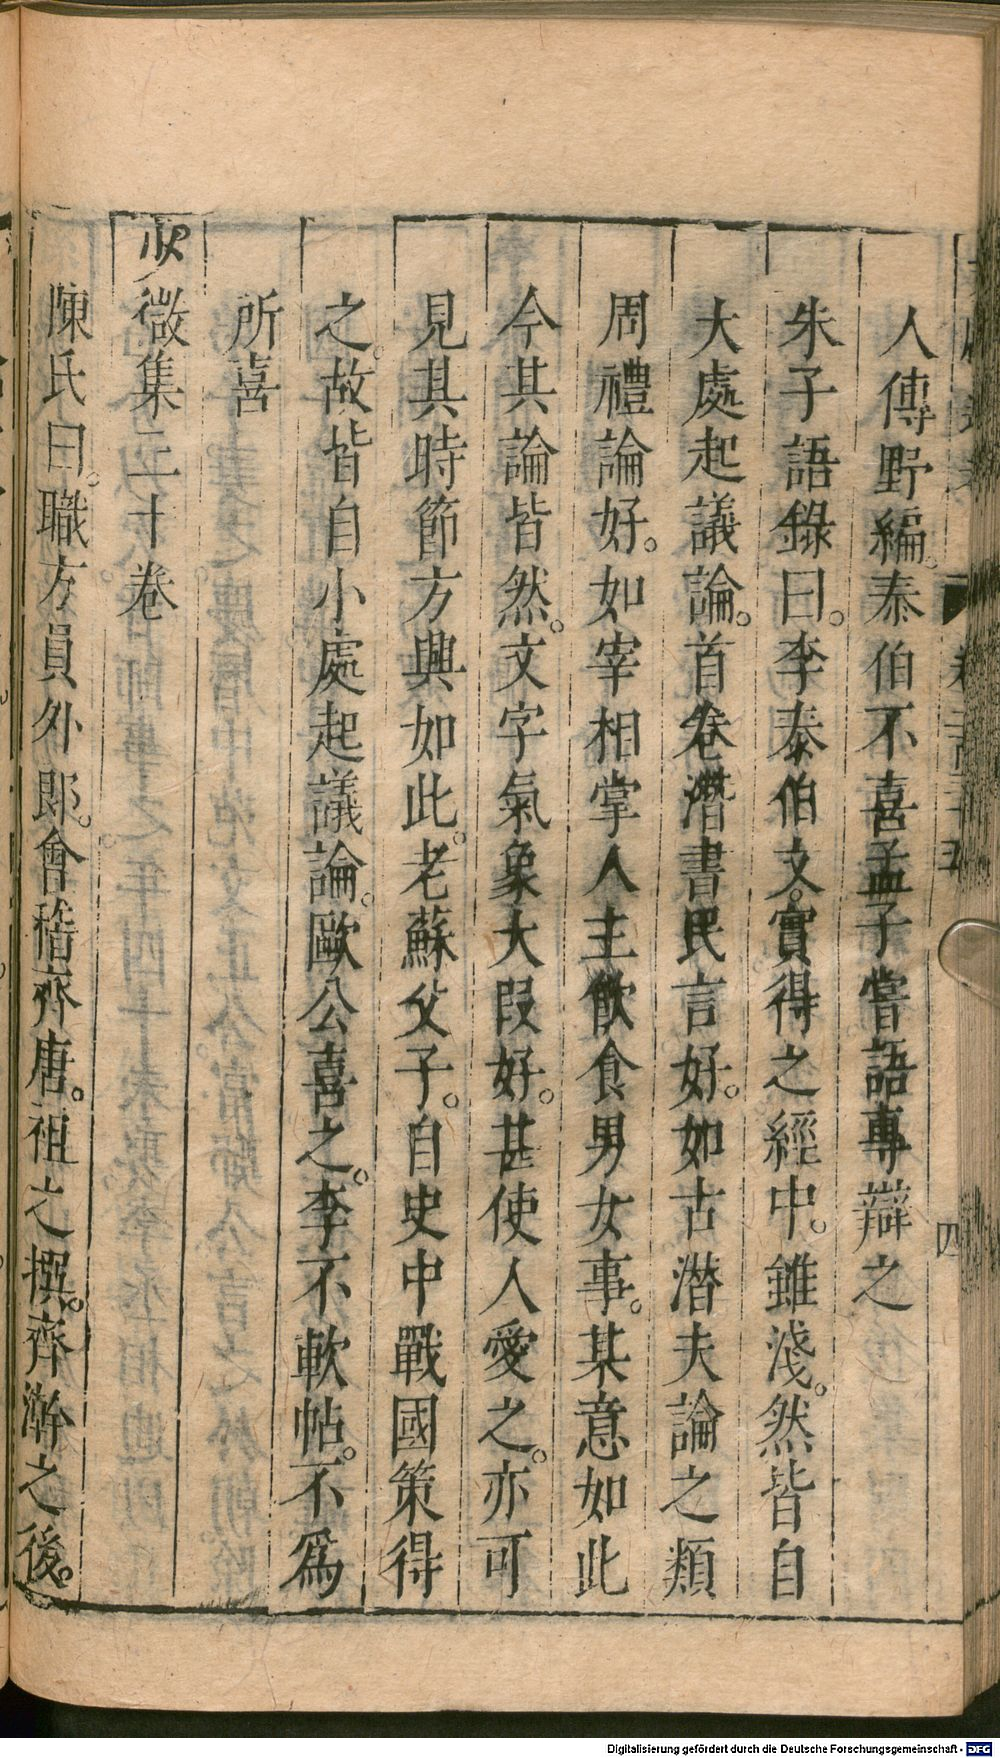 人傳野編。泰伯不喜孟子嘗語專辯之
朱子語錄曰。李泰伯文。實得之經中。雖淺。然皆自
大處起議論。首卷潛書民言好。如古潛夫論之類
周禮論好。如宰相掌人主飲食男女事。某意如此
今其論皆然。文字氣象大段好。甚使人愛之。亦可
見其時節方興如此。老蘇父子。自史中戰國策得
之。故皆自小處起議論。歐公喜之。李不軟帖。不爲
所喜
微集二十卷
陳氏曰。職方員外郎。會稽齊唐。祖之撰。齊澣之後。
四
Digitalisierung gefördert durch die Deutsche Forschungsgemeinschaft - DFG